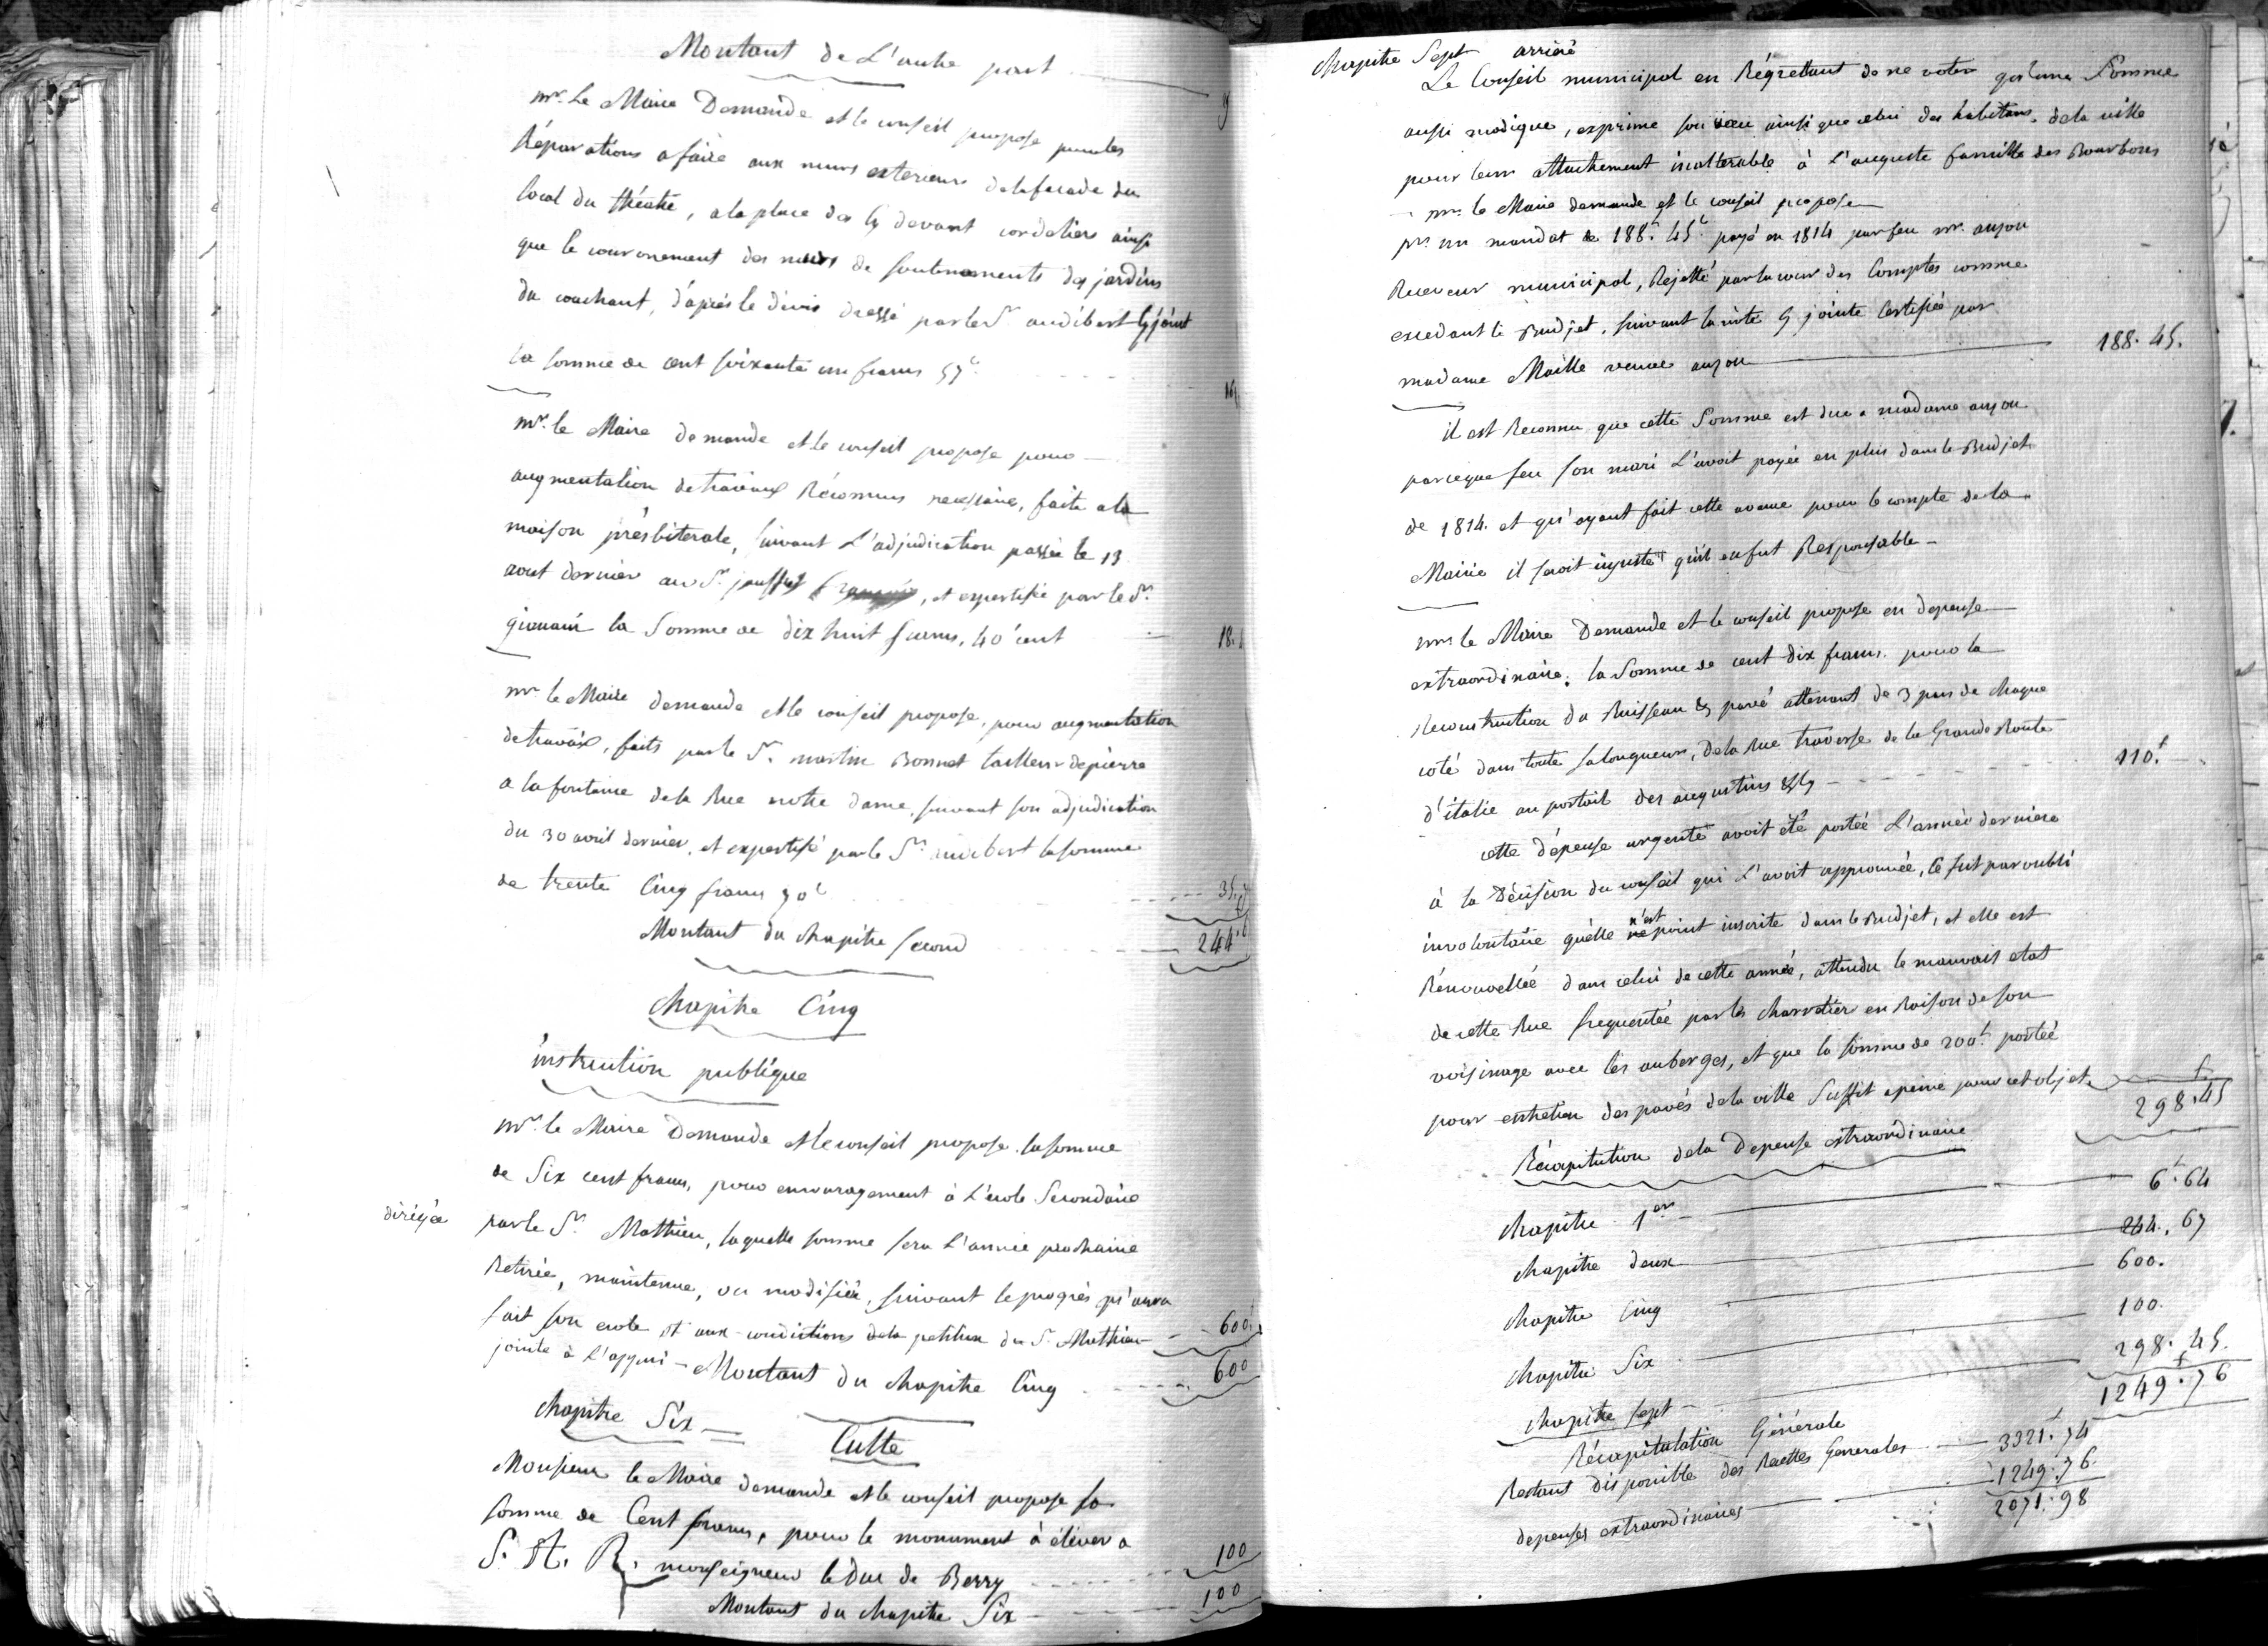 Montant de L'autre part
mr. Le Maire Demande et le conseil propose pour les
Réparations a faire aux murs exterieurs de la facade du
local du théatre, a la place des cy devant cordeliers ainsi
que le couronement des murs de soutenements des jardins
du couchant, d'après le dévis dressé par le Sr. audibert cy joint
la somme de cent soixante un francs 57c
mr. le Maire demande et le conseil propose pour
augmentation de travaux Réconnus necessaires, faite a la
maison présbiterale, suivant L'adjudication passée le 13
aout dernier au Sr. , et expertisée par le Sr.
la Somme de dix huit francs, 40 cent 18.
mr. le Maire demande et le conseil propose, pour augmentation
de travaux, faits par le Sr. martin Bonnet tailleur de pierre
a la fontaine de la Rue notre dame, suivant son adjudication
du 30 avril dernier, et expertisé par le Sr. audibert la somme
de trente Cinq francs 70c 35.
Montant du chapitre second 244.
Chapitre Cinq
instruction publique
mr. le Maire Demande et le conseil propose la somme
de Six cent francs, pour encouragement à L'école Secondaire
dirigée par le Sr. Mathieu, laquelle somme sera L'année prochaine
Retirée, maintenue, ou modifiée, suivant le progrès qu'aura
fait son ecole et aux conditions de la petition du Sr. Mathieu 600f.
jointe à L'appui - Montant du chapitre Cinq 600
Chapitre Six = Culte
Monsieur le Maire demande et le conseil propose la
somme de Cent francs, pour le monument à élever a
S. A. R. monseigneur le Duc de Berry 100
Montant du chapitre Six 100
Chapitre Sept arriéré
Le Conseil municipal en Régrettant de ne voter qu'une Somme
aussi modique, exprime son vœu ainsi que celui des habitans de la ville
pour leur attachement inalterable à L'auguste famille des Bourbons
mr. le Maire demande et le conseil propose
pr. un mandat de 188f. 45c. payé en 1814 par feu mr. anjou
Receveur municipal, Rejetté par la cour des Comptes comme
excedant le Budjet, suivant la note cy jointe Certifiée par
madame Maille veuve anjou 188. 45.
il est Reconnu que cette Somme est due a madame anjou
parceque feu son mari L'avoit payée en plus dans le Budjet
de 1814. et qu'ayant fait cette avance pour le compte de la
Mairie il seroit injuste qu'il en fut Responsable -
mr. le Maire Demande et le conseil propose en depense
extraordinaire, la Somme de cent dix francs. pour la
Reconstruction du Ruisseau & pavé attenant de 3 pans de chaque
coté dans toute sa longueur, de la Rue traverse de la Grande Route
d'italie au portail des augustins 110.f
cette dépense urgente avoit été portée L'année derniere
à la Décision du conseil qui L'avoit approuvée, Ce fut par oubli
involontaire quelle n'est point inscrite dans le Budjet, et elle est
Rénouvellée dans celui de cette année, attendu le mauvais etat
de cette Rue frequentée par les charretier en Raison de son
voisinage avec les auberges, et que la somme de 200f. portée
pour entretien des pavés de la ville Suffit apeine pour cet objet. 298f.45
Récapitution de la Depense extraordinaire
Chapitre 1er 6f.64
Chapitre deux 244. 67
Chapitre Cinq 600.
Chapitre Six 100.
Chapitre sept 298. 45.
1249f.76
Récapitulation Générale
Restant disponible des Recettes Generales 3321f.74
depenses extraordinaires 1249.76.
2071.98